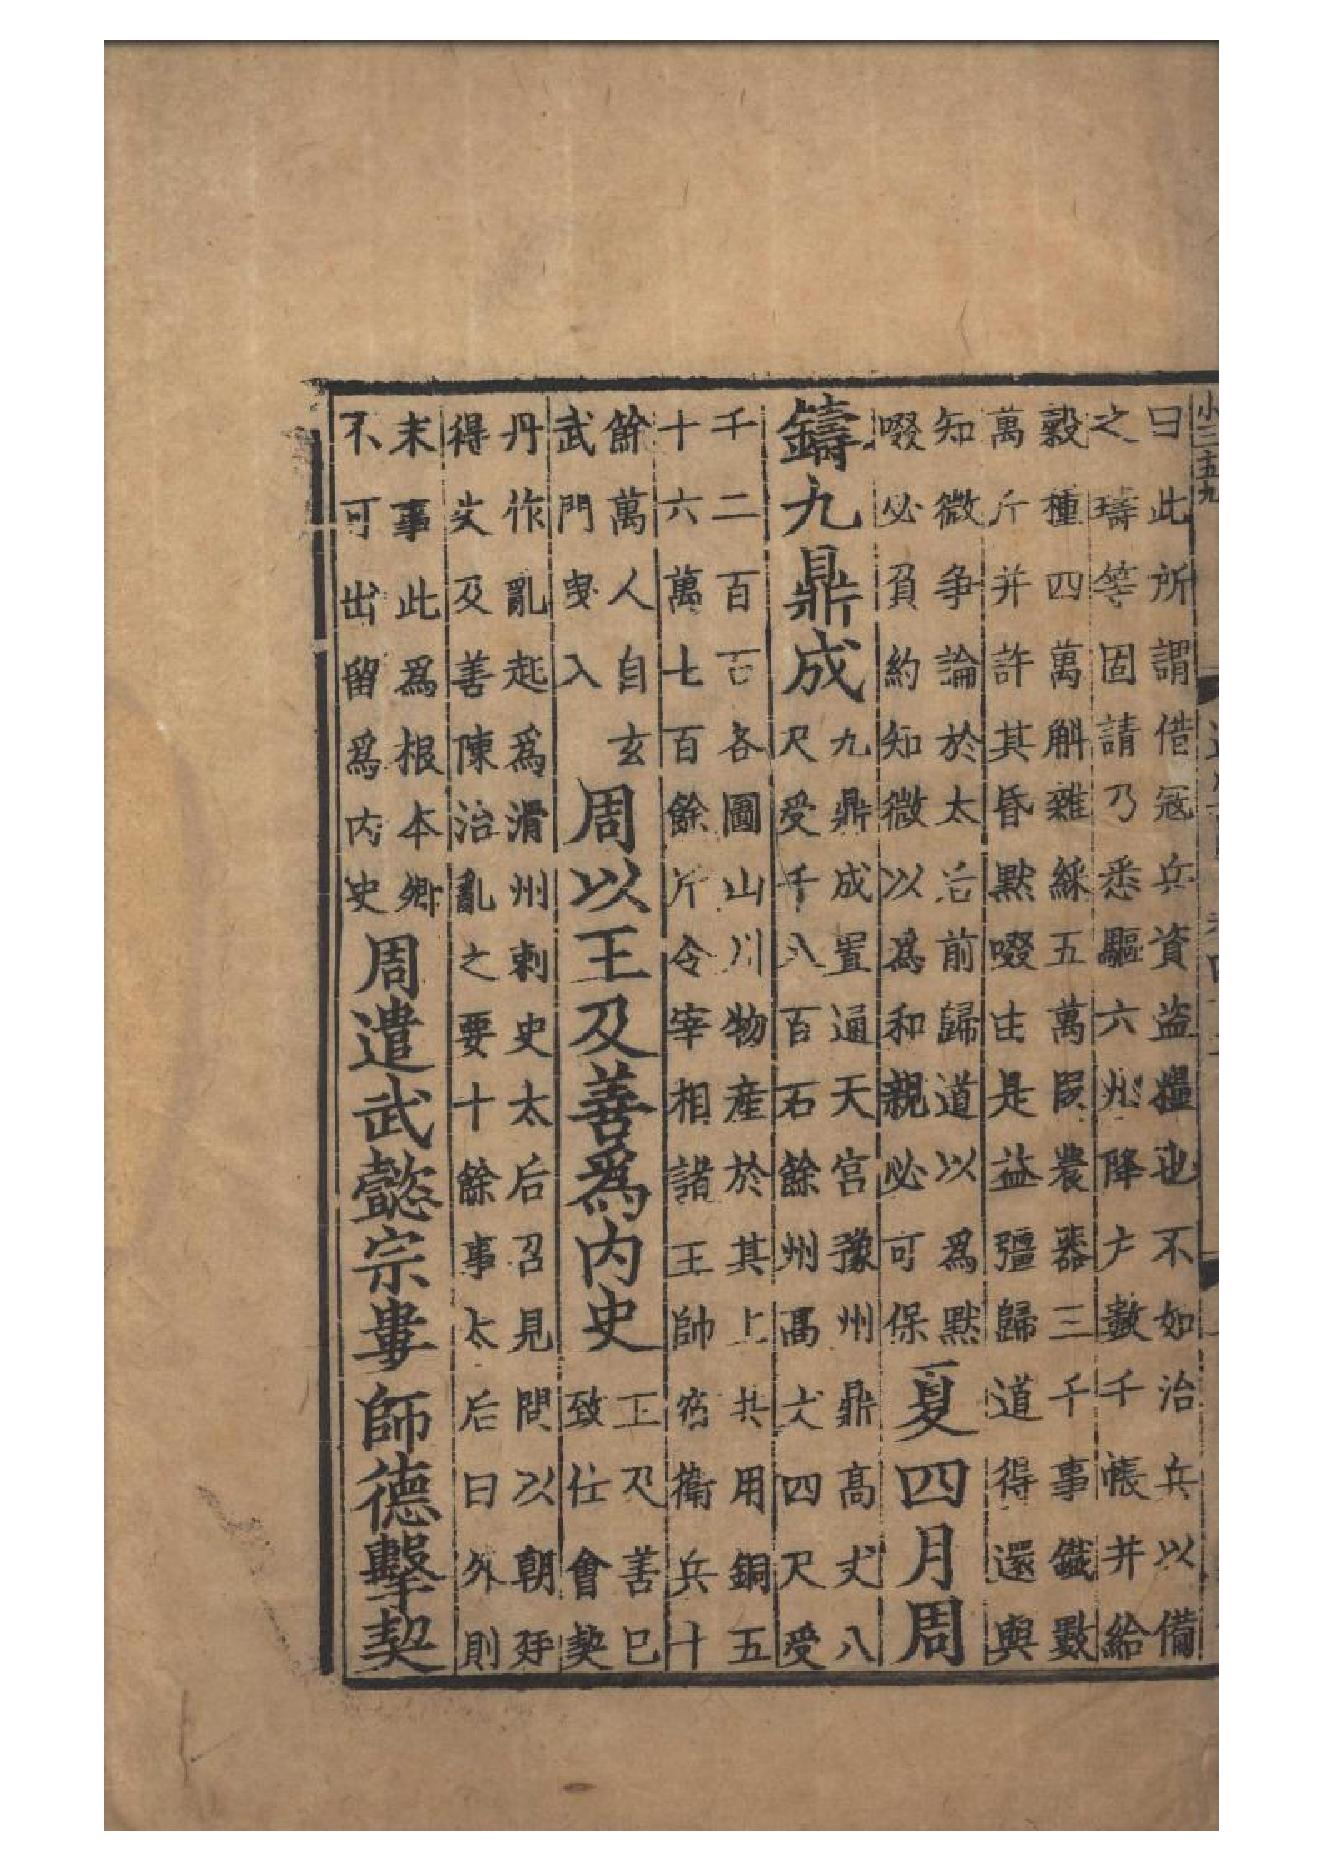 小三五九
曰此所謂借寇兵資盜糧也不如治兵以備
之璹等固請乃悉驅六州降户數千帳并給
穀種四萬斛雜綵五萬段農器三千事鐵數
萬斤并許其昏默啜由是益彊歸道得還與
知微争論於太后前歸道以爲默
啜必負約知微以爲和親必可保
夏四月周
鑄九鼎成
九鼎成置通天宫豫州鼎高丈八
尺受千八百石餘州高丈四尺受
千二百石各圖山川物産於其上共用銅五
十六萬七百餘斤令宰相諸王帥宿衛兵十
餘萬人自玄
武門曳入
周以王及善爲内史
王及善已
致仕會契
丹作亂起爲滑州刺史太后召見問以朝廷
得失及善陳治亂之要十餘事太后曰外則
末事此爲根本卿
不可出留爲内史
周遣武懿宗婁師德擊契